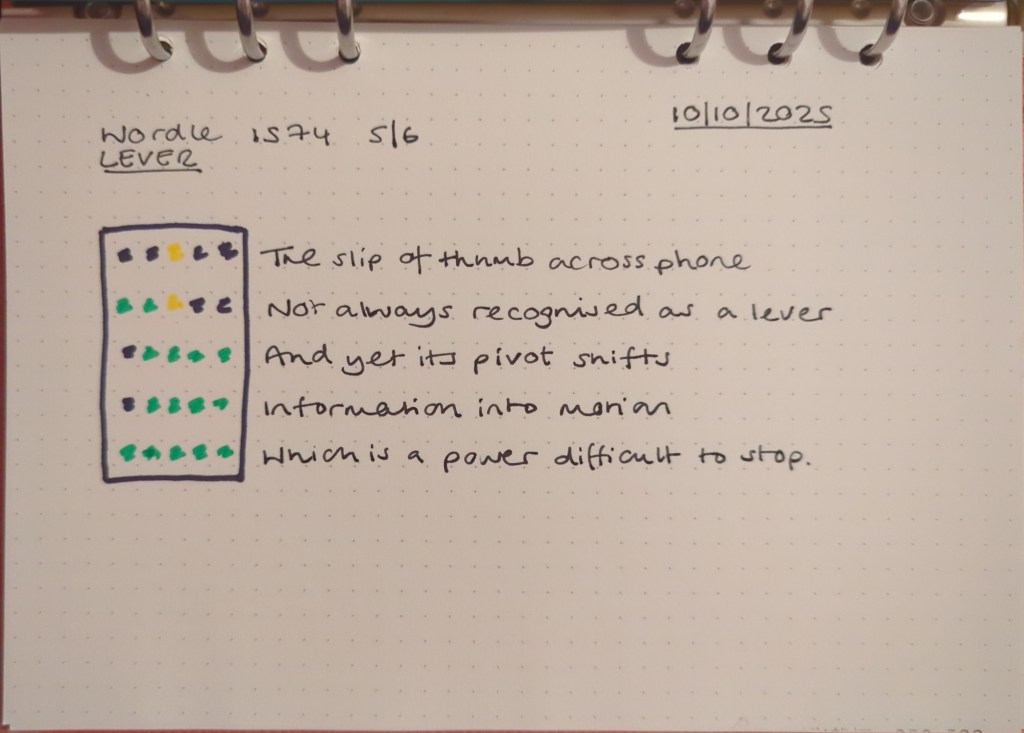 10/10/2025
Wordle 1574 5/6
LEVER
The slip of thumb across phone
Not always recognised as a lever
And yet its pivot shifts
Information into motion
Which is a power difficult to stop.